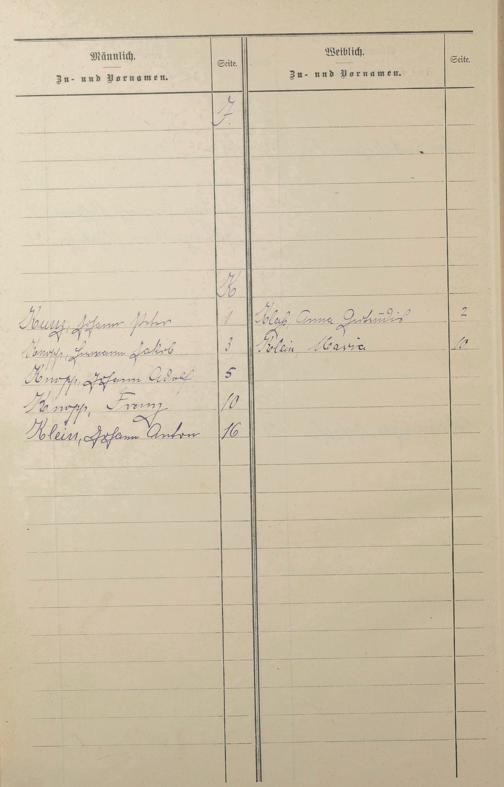 Männlich.
Zu- und Vornamen.
Seite.
Weiblich.
Zu- und Vornamen.
Seite.
J.
K
Kunz, Johann Peter 1
Anna Gertrudis 2
Knopp, Hermann Jakob 3
Klein, Maria 10
Knopp, Johann Adolf 5
Knopp, Franz 10
Klein, Johann Anton 16